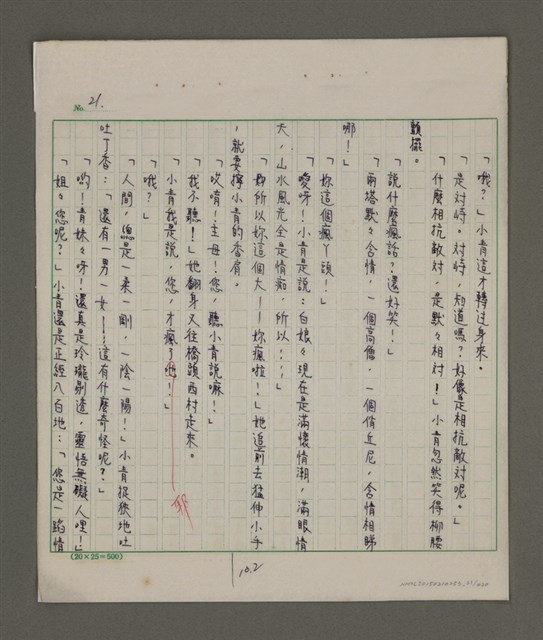 No. 21.
「哦？」小青這才轉过身來。
「是对峙。对峙，知道嗎？好像是相抗敵対呢。」
「什麼相抗敵対，是默々相对！」小青忽然笑得柳腰
顫擺。
「說什麼瘋話？還好笑！」
「兩塔默々含情，一個高僧，一個俏丘尼，含情相睇
哪！」
「妳這個瘋丫頭！」
「噯呀！小青是說：白娘々現在是滿懷情潮，滿眼情
天，山水風光全是情痴，所以……」
「妳所以妳這個大——妳瘋啦！」她追前去猛伸小手
，就要擰小青的香肩。
「哎唷！主母！您，聽小青說嘛！」
「我不聽！」她翻身又往橋頭西村走來。
「小青我是說，您，才瘋了吔！」
耶
「哦？」
「人間，總是一柔一剛，一陰一陽！」小青捉狹地吐
吐丁香：「還有一男一女！——這有什麼奇怪呢？」
「喲！青妹々呀！還真是玲瓏剔透，靈悟無礙人哩！」
「姐々您呢？」小青還是正經八百地：「您是一蹈情
(20×25=500)
10.2